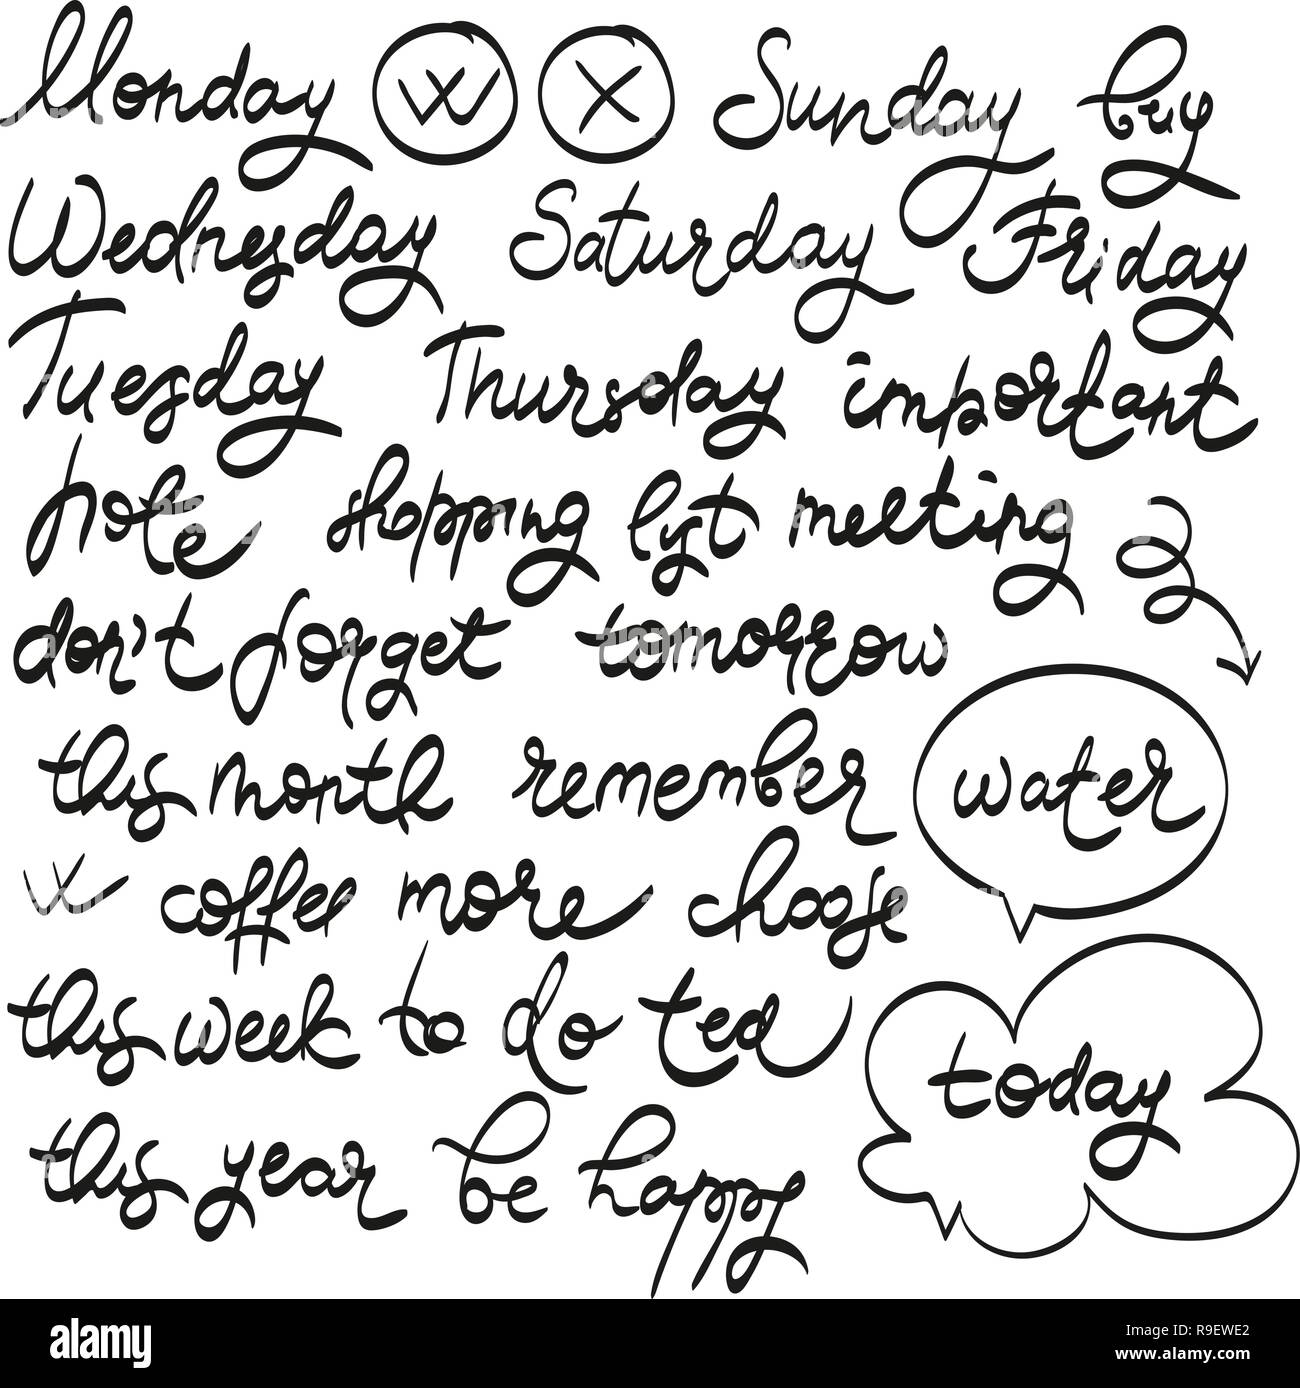 Monday W X Sunday buy
Wednesday Saturday Friday
Tuesday Thursday important
note shopping lyst meeting
don't forget tomorrow
this month remember water
coffee more choose
this week to do ted
today
this year be happy
alamy
Image ID: R9EWE2
www.alamy.com